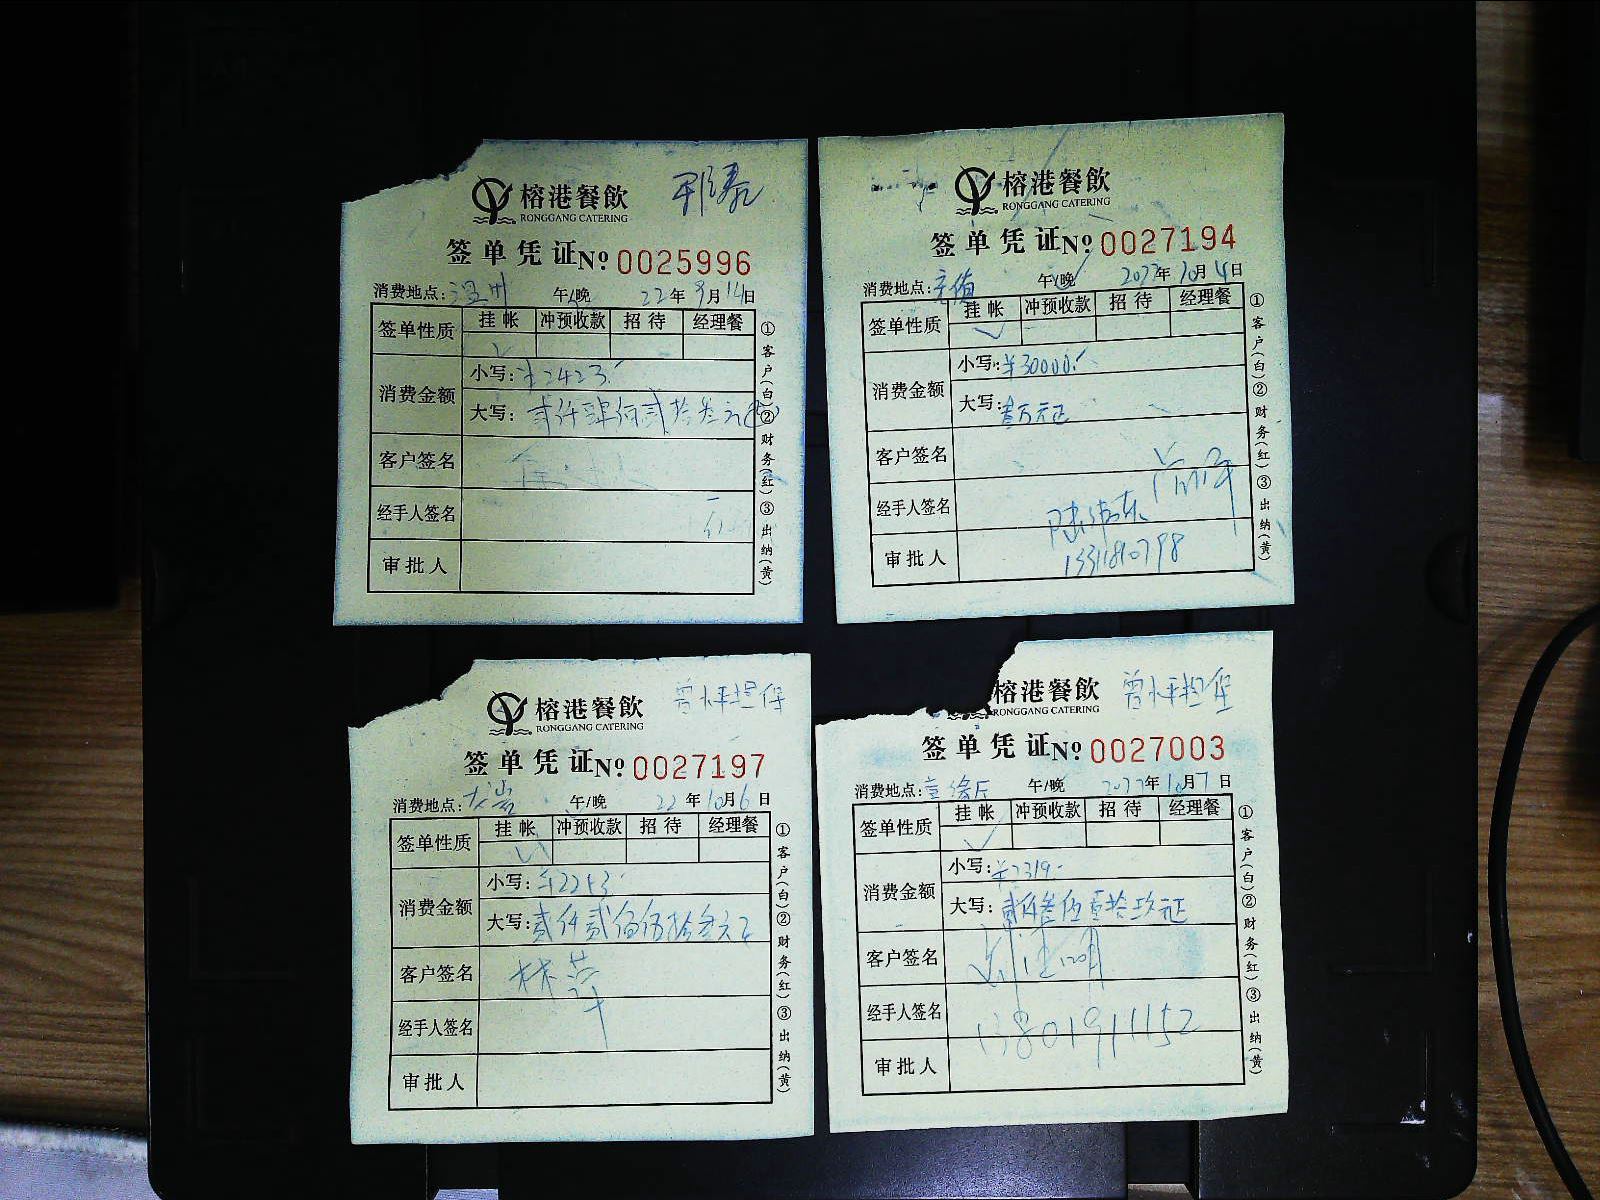 榕港餐飲 邢泰
RONGGANG CATERING
签单凭证 № 0025996
消费地点: 温州 午/晚 22年9月14日
签单性质 挂帐 冲预收款 招待 经理餐
✓
消费金额 小写: ¥2423.
大写: 贰仟肆佰贰拾叁元
客户签名
经手人签名
审批人
①客户(白)②财务(红)③出纳(黄)
榕港餐飲
RONGGANG CATERING
签单凭证 № 0027194
消费地点: 充值 午/晚 2022年10月4日
签单性质 挂帐 冲预收款 招待 经理餐
✓
消费金额 小写: ¥30000.
大写: 万元正
客户签名
经手人签名
审批人 13311810798
①客户(白)②财务(红)③出纳(黄)
榕港餐飲 曾水平担保
RONGGANG CATERING
签单凭证 № 0027197
消费地点: 午/晚 22年10月6日
签单性质 挂帐 冲预收款 招待 经理餐
✓
消费金额 小写: ¥2253.
大写: 贰仟贰佰伍拾叁元正
客户签名 林萍
经手人签名
审批人
①客户(白)②财务(红)③出纳(黄)
榕港餐飲 曾水平担保
RONGGANG CATERING
签单凭证 № 0027003
消费地点: 午/晚 2022年10月7日
签单性质 挂帐 冲预收款 招待 经理餐
✓
消费金额 小写: ¥2319.
大写: 贰仟叁佰壹拾玖元正
客户签名
经手人签名 13801911152
审批人
①客户(白)②财务(红)③出纳(黄)